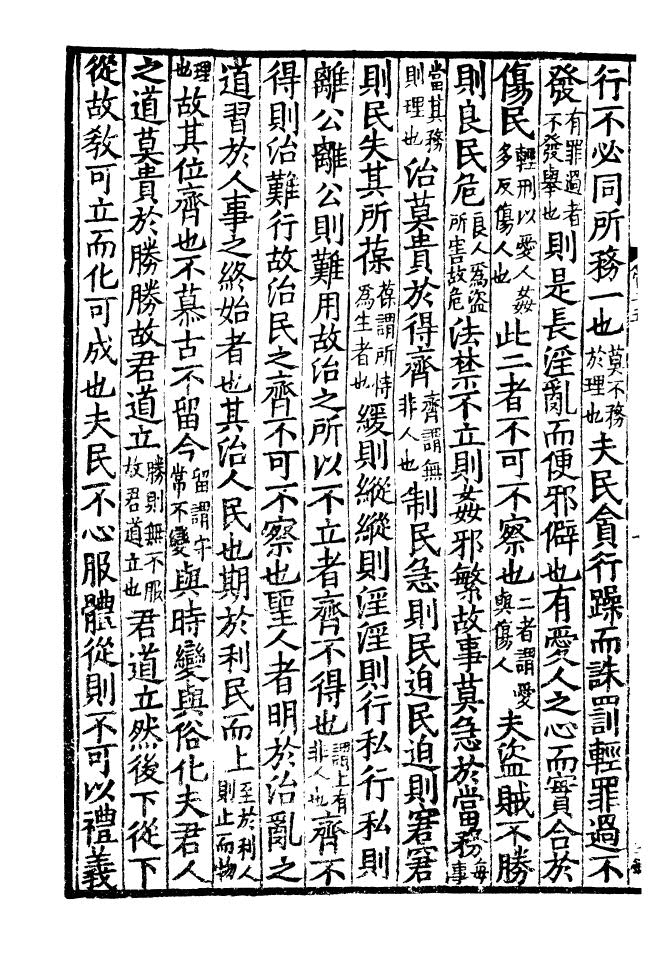 行不必同所務一也莫不務於理也夫民貪行躁而誅罰輕罪過不
發有罪過者不發舉也則是長淫亂而便邪僻也有愛人之心而實合於
傷民輕刑以愛人姦多反傷人也此二者不可不察也二者謂愛與傷人夫盜賊不勝
則良民危良人爲盜所害故危法禁不立則姦邪繁故事莫急於當務每事
當其務則理也治莫貴於得齊齊謂無非人也制民急則民迫民迫則窘窘
則民失其所葆葆謂所恃爲生者也緩則縱縱則淫淫則行私行私則
離公離公則難用故治之所以不立者齊不得也謂上有非人也齊不
得則治難行故治民之齊不可不察也聖人者明於治亂之
道習於人事之終始者也其治人民也期於利民而上至於利人則止而物
理也故其位齊也不慕古不留今留謂守常不變與時變與俗化夫君人
之道莫貴於勝勝故君道立勝則無不服故君道立也君道立然後下從下
從故教可立而化可成也夫民不心服體從則不可以禮義